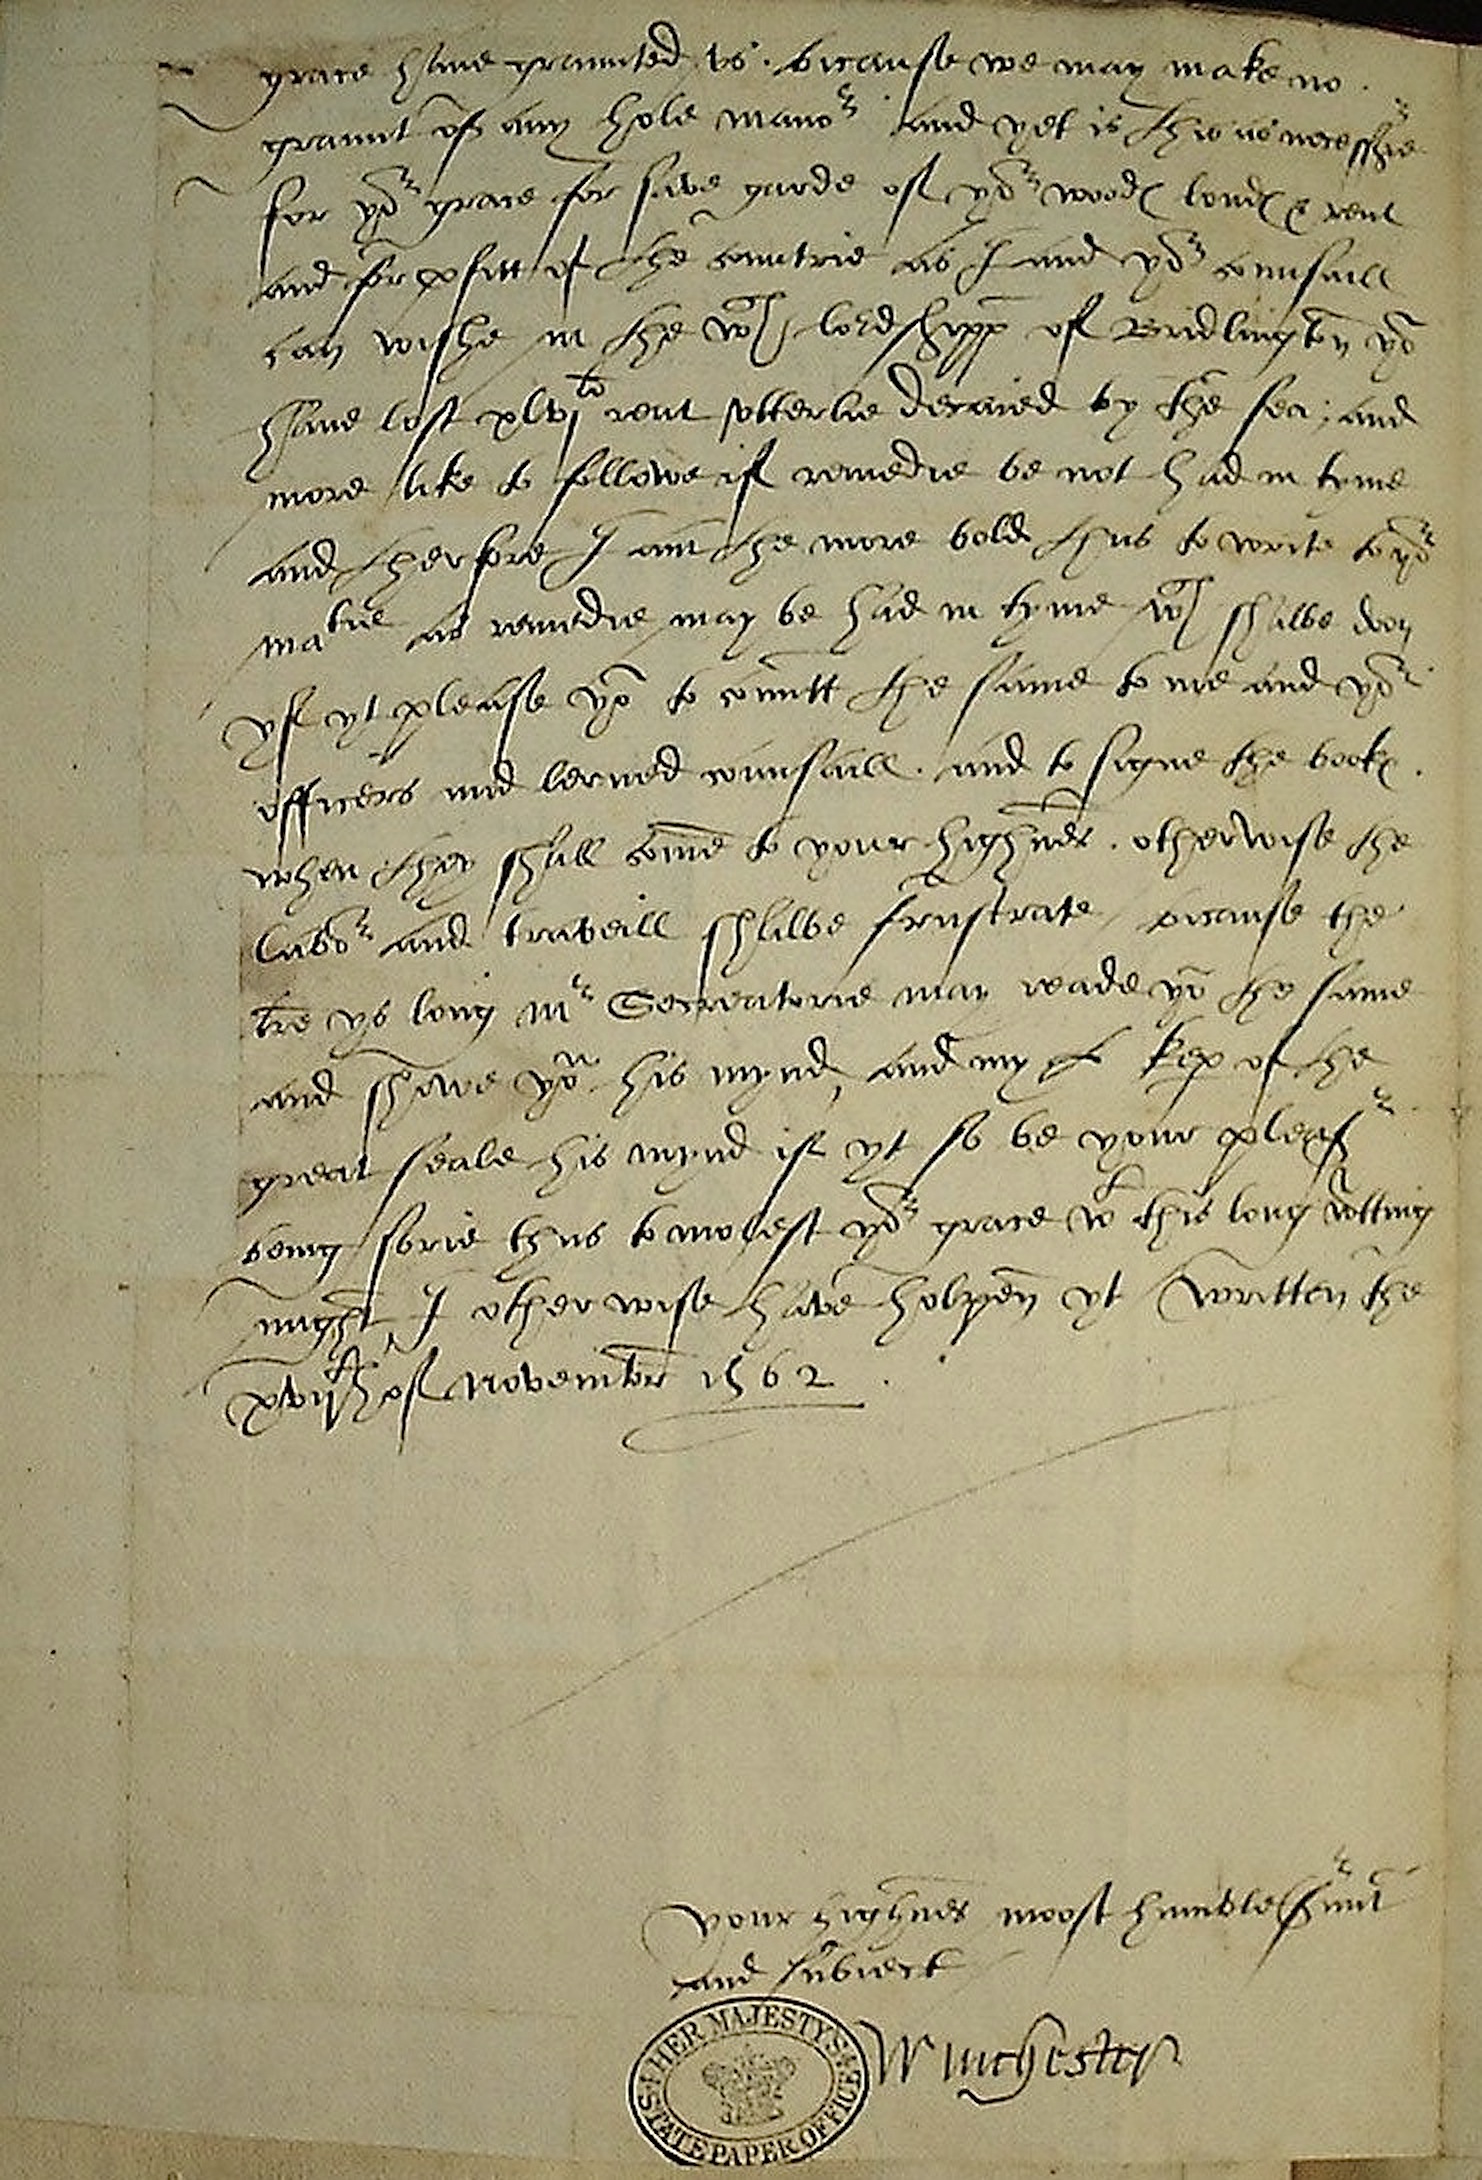 grace have graunted vs. bicause we may make no.
graunt of any hole mano^r and yet is this as necessarie
for yo^r grace for save garde of yo^r woodes londes & rent
and for profitt of the countrie as I and yo^r counsaill
can wishe in the w^ch lordshipp of Bridlington yo^u
have lost xlvj^li rent vtterlie decaied by the sea; and
more like to followe if remedie be not had in tyme
and therfore I am the more bold thus to write to yo^r
ma^tie as remedie may be had in tyme w^ch shalbe doon
yf yt please yo^u to comitt the same to me and yo^r
officers and lerned counsaill. and to signe the bookes.
when they shall come to your highnes. otherwise the
labo^r and traveill shalbe frustrate, bicause the
lre ys long M^r Secreatorie may reade yo^u the same
and shewe yo^u his mynd, and my L kep of the
great seale his mynd if yt so be your pleas^r
being sorie thus to molest yo^r grace w^t this long writting
might I otherwise have holpen yt Written the
xvij^th of November 1562.
your highnes moost humble s^runt
and subiect
Winchester
HER MAJESTY'S
STATE PAPER OFFICE